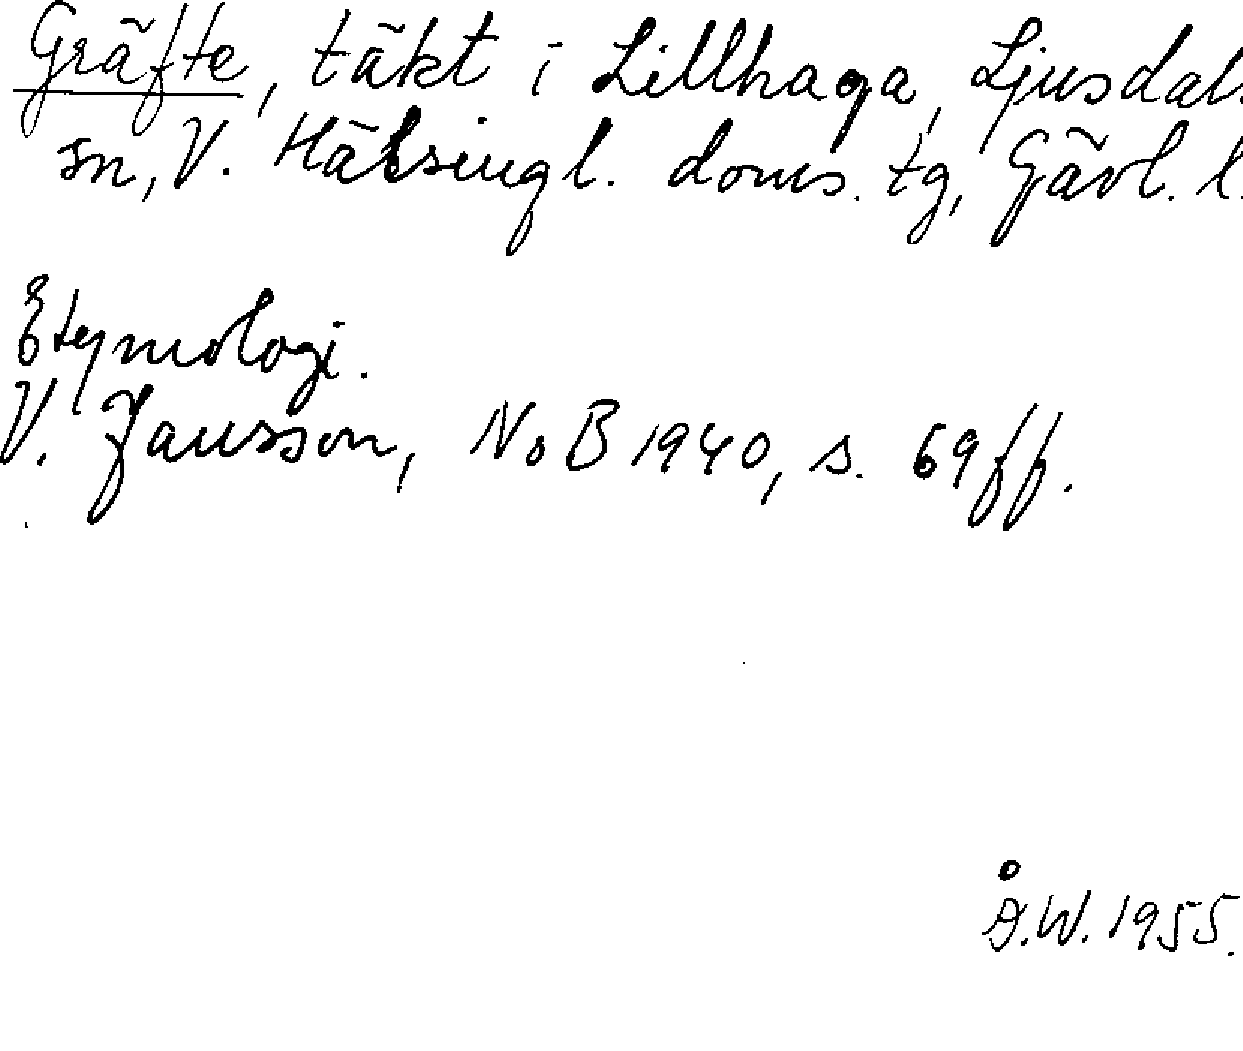 Gräfte, täkt i Lillhaga, Ljusdals
sn, V. Hälsingl. doms. tg, Gävl. l.
Etymologi.
V. Jansson, NoB 1940, s. 69 ff.
Å.W. 1955.